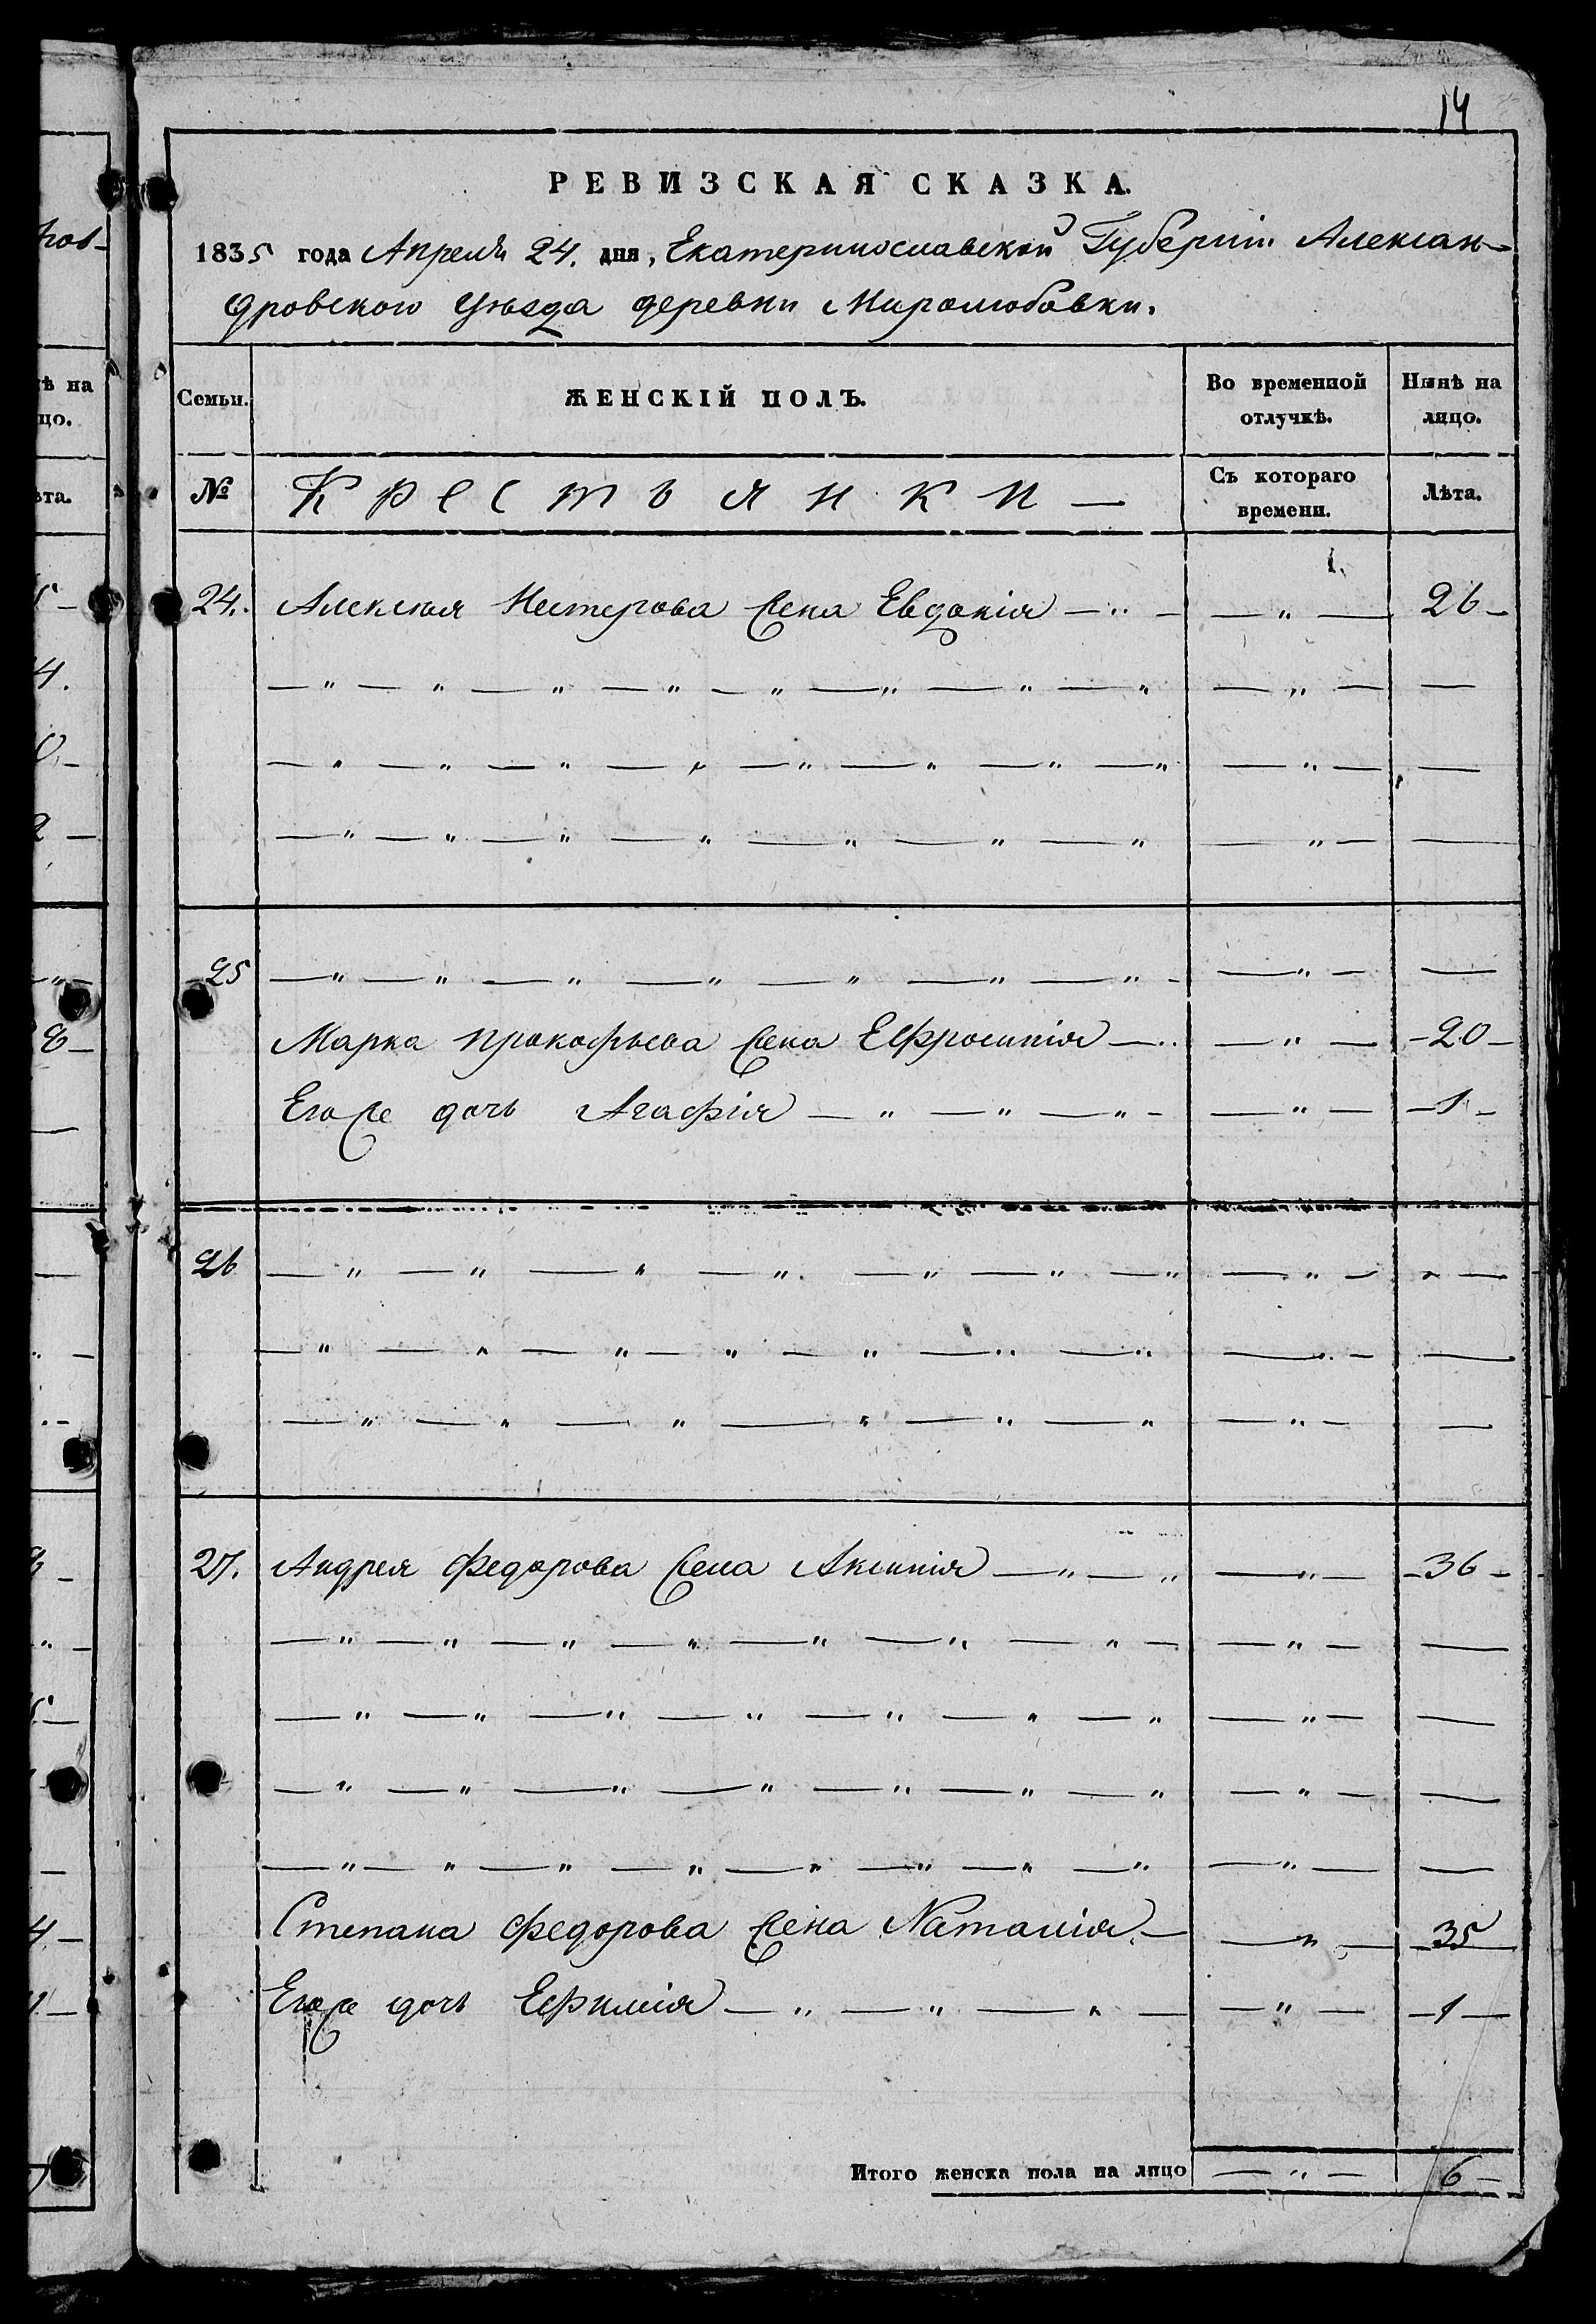 14
РЕВИЗСКАЯ СКАЗКА.
1835 года Апреля 24. дня, Екатеринославской Губернии Алексан-
дровского уѣзда деревни Миролюбовки.
Семьи. ЖЕНСКІЙ ПОЛЪ. Во временной отлучкѣ. Нынѣ на лицо.
№ Крестьянки — Съ котораго времени. Лѣта.
24. Алексея Нестерова жена Евдокія — " — — " — 26 —
— " — " — " — " — " — " — " — " — " — —
— " — " — " — " — " — " — " — " — " — —
— " — " — " — " — " — " — " — " — —
25 — " — " — " — " — " — " — " — — " — —
Марка Прокофьева жена Ефросинія — " — " — — 20 —
Его же дочь Агафія — " — " — " — — " — — 1 —
26 — " — " — " — " — " — " — " — " — " —
— " — " — " — " — " — " — " — " — —
— " — " — " — " — " — " — " — —
27. Андрея Федорова жена Аксинія — " — " — " — — 36 —
— " — " — " — " — " — " — " — — " — —
— " — " — " — " — " — " — " — " — —
— " — " — " — " — " — " — " — " — —
— " — " — " — " — " — " — " — " — " — —
Степана Федорова жена Наталія — — " — 35
Его же дочь Ефимія — " — " — " — — " — — 1 —
Итого женска пола на лицо — " — 6 —
ѣ на
цо.
ѣта.